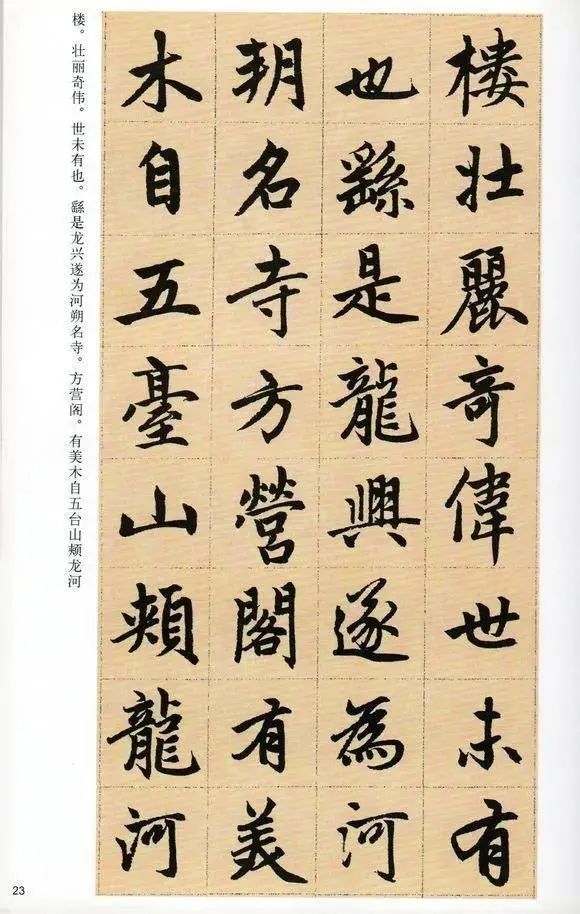 樓壯麗奇偉世未有
也繇是龍興遂為河
朔名寺方營閣有美
木自五臺山頰龍河
楼。壮丽奇伟。世未有也。繇是龙兴遂为河朔名寺。方营阁。有美木自五台山颊龙河
23